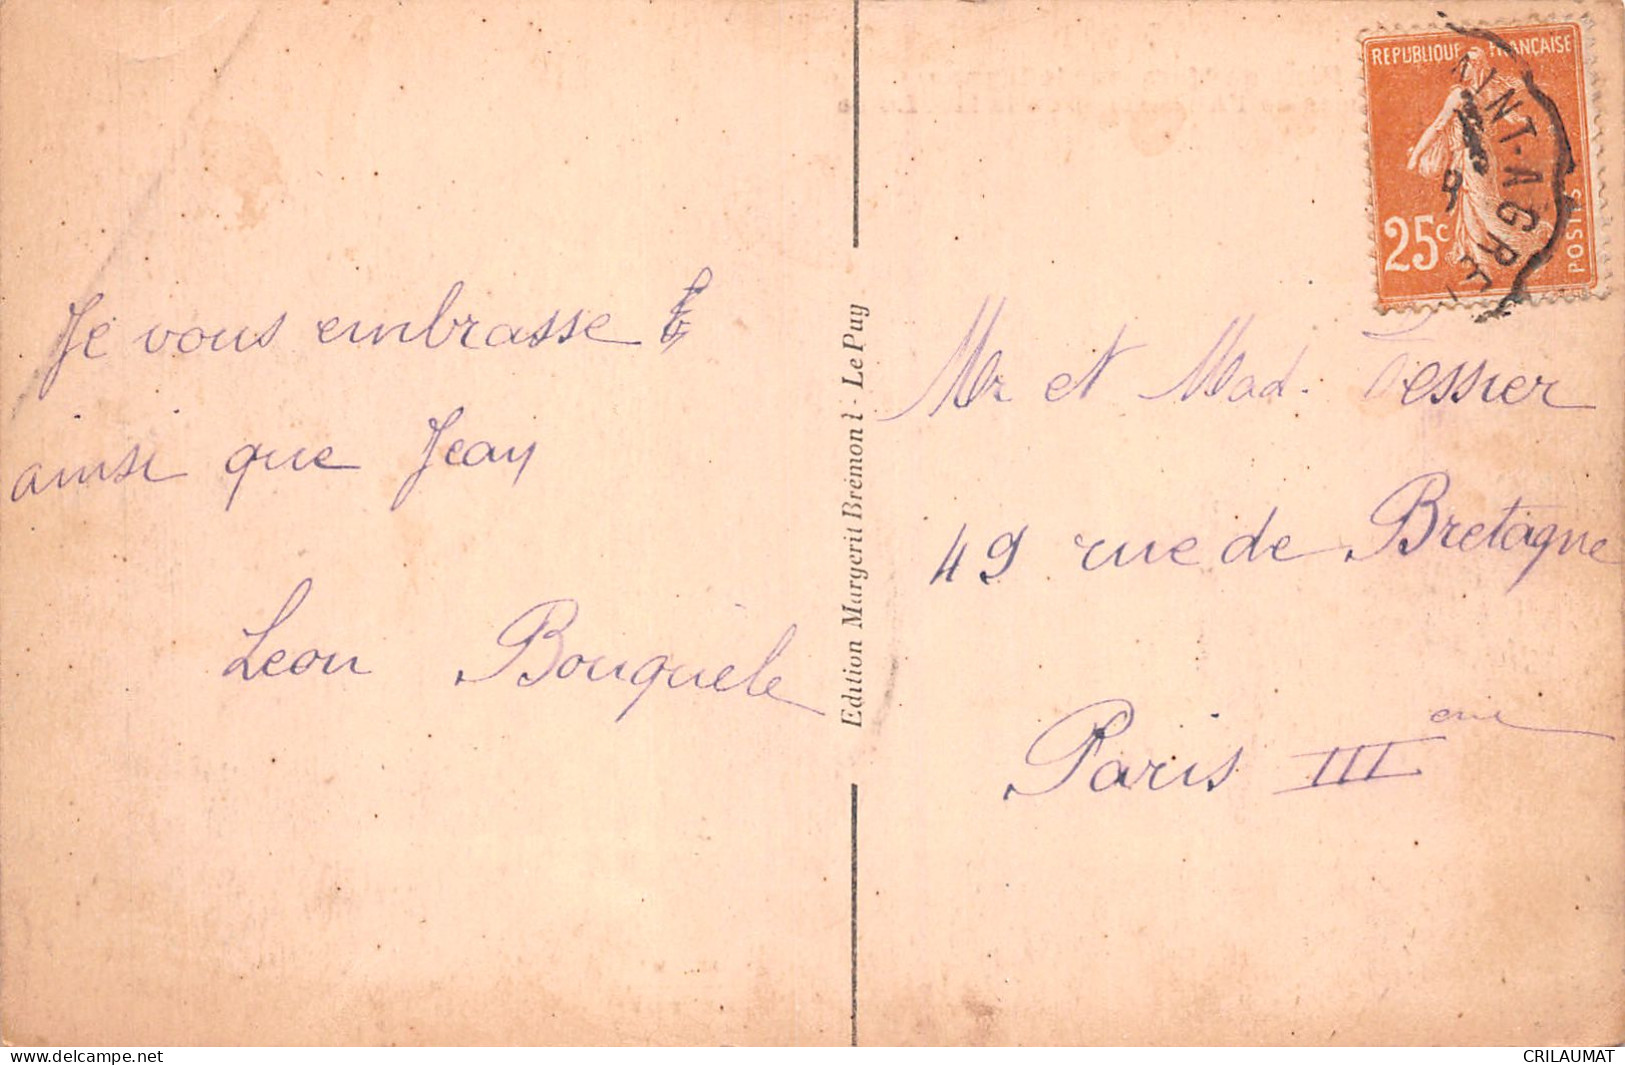 Je vous embrasse
ainsi que Jean
Leon Bouquele
Edition Margerit Brémond - Le Puy
REPUBLIQUE FRANÇAISE
25c
POSTES
AINT-AGRE
Mr et Mad. Tessier
49 rue de Bretagne
Paris III eme
www.delcampe.net
CRILAUMAT